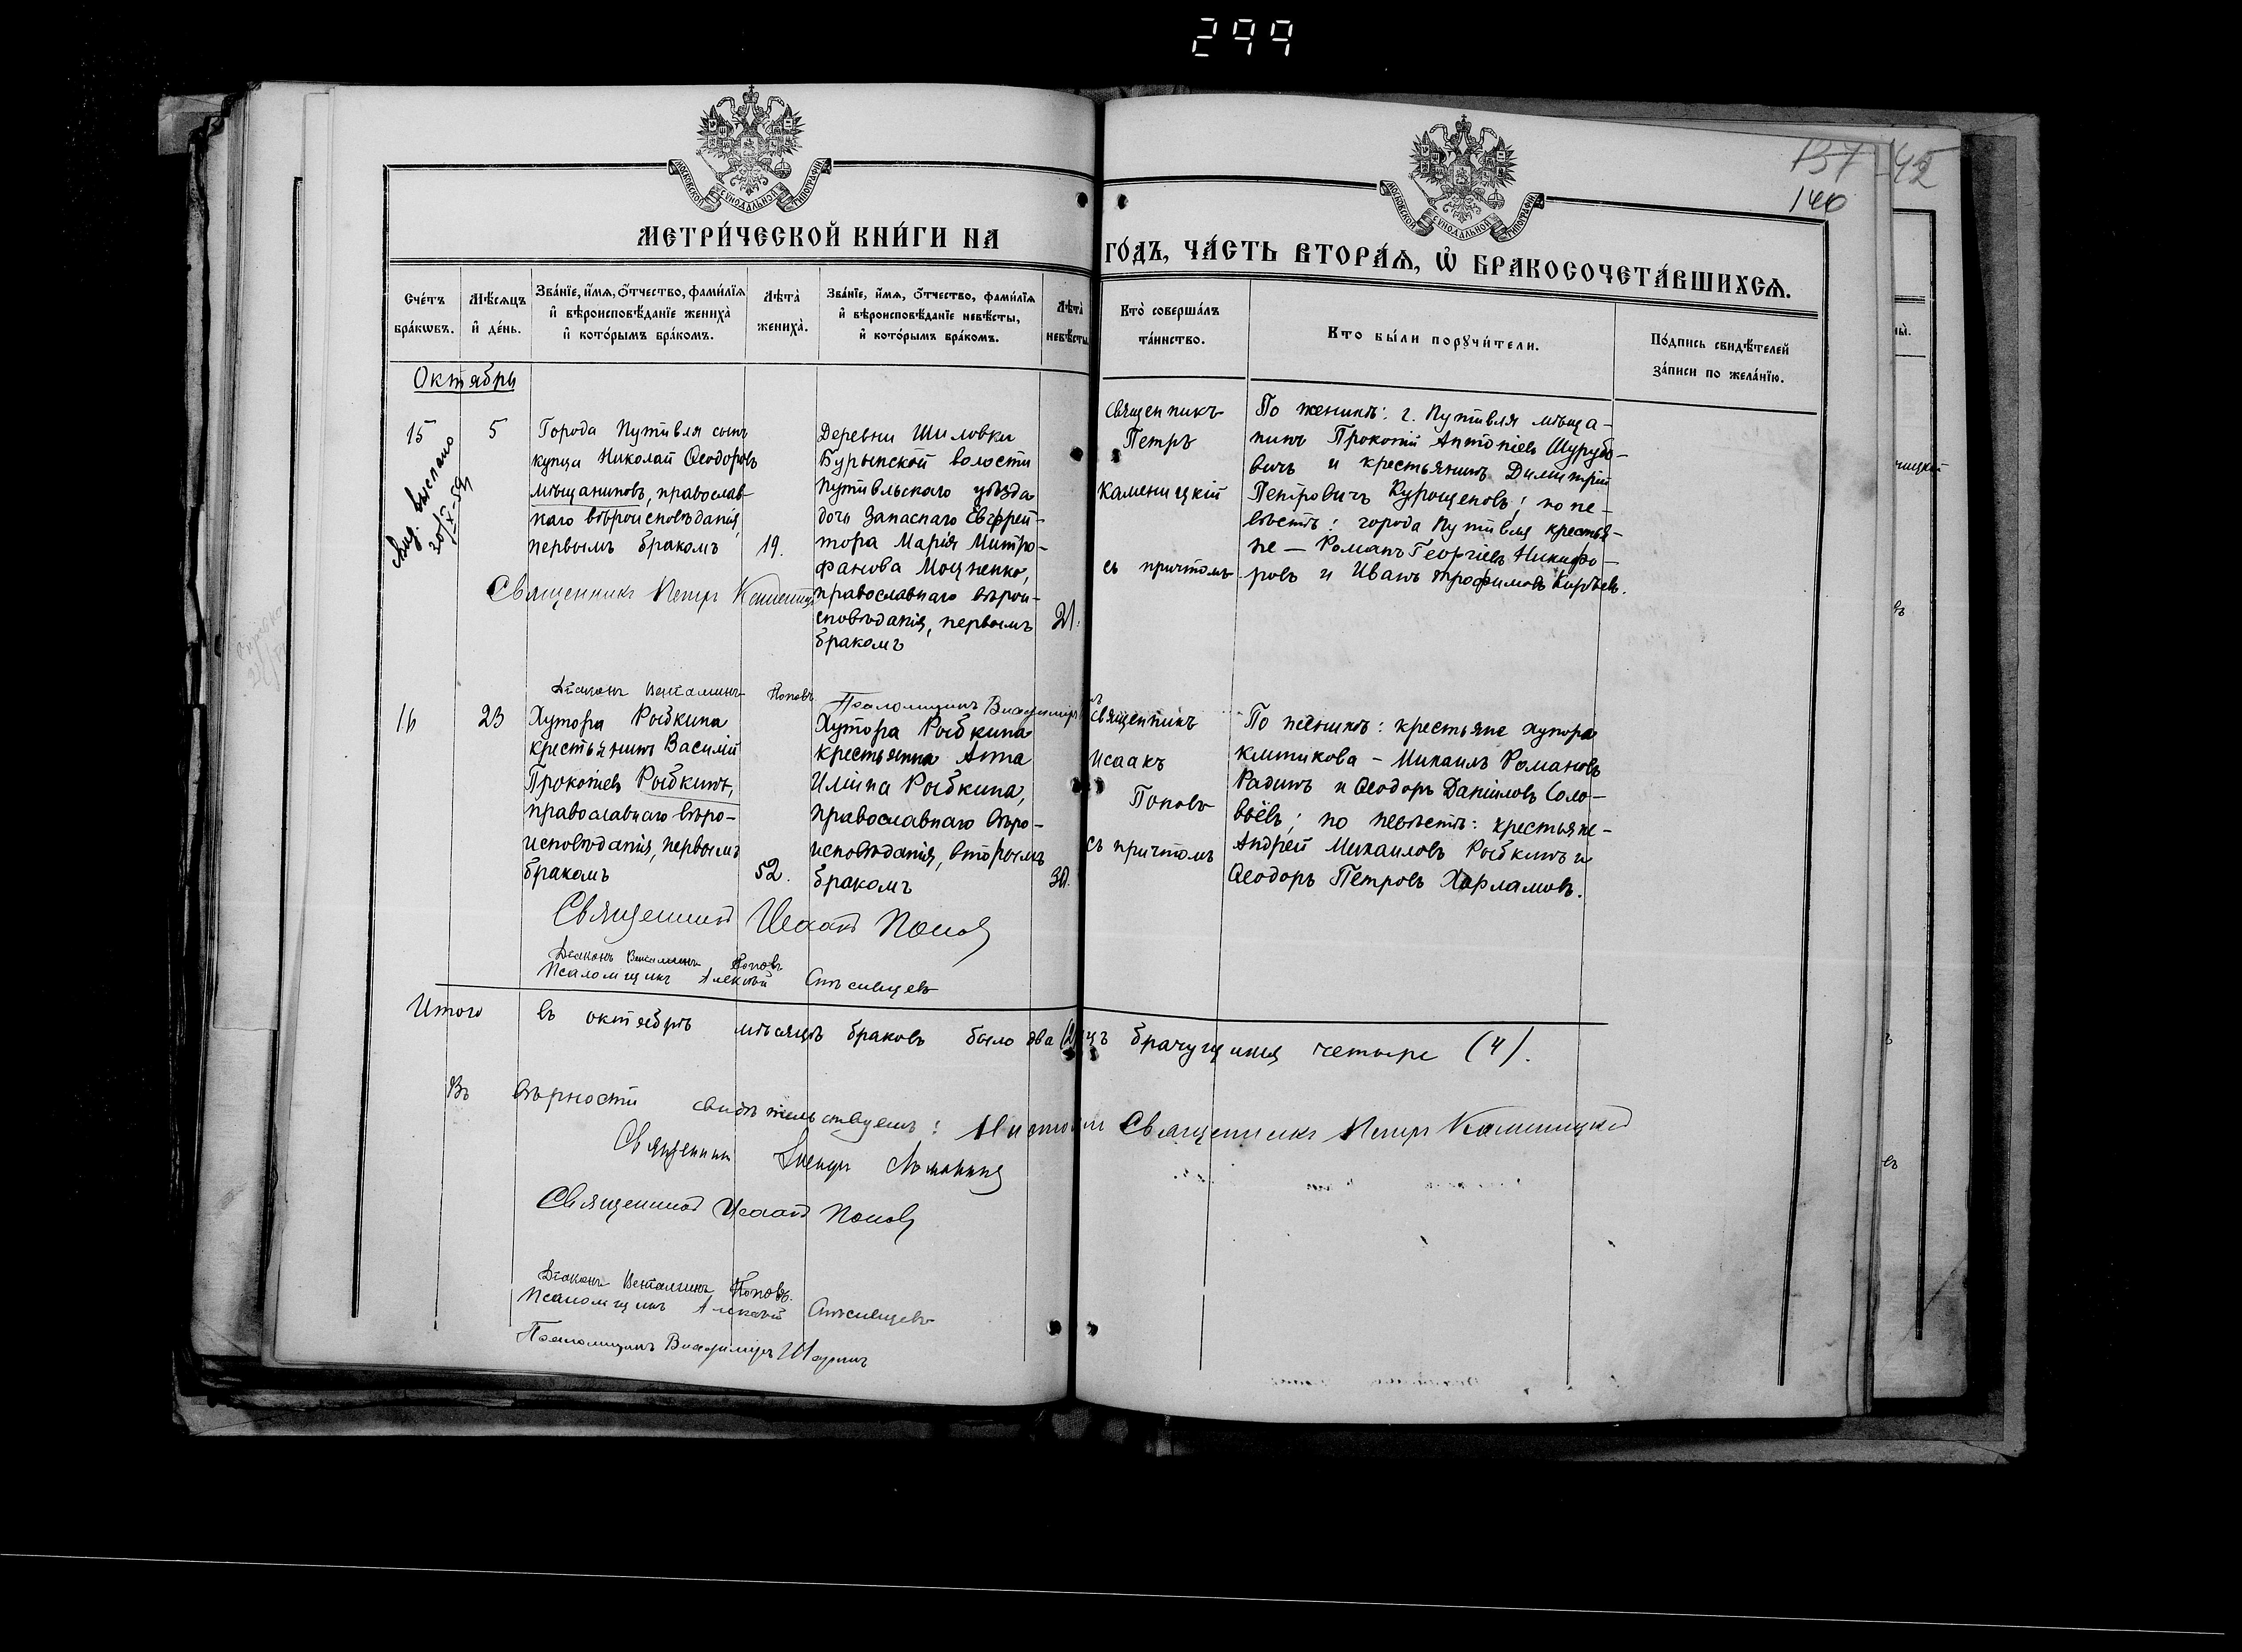 299
МОСКОВСКОЙ СУНОДАЛЬНОЙ ТИПОГРАФІИ
МОСКОВСКОЙ СУНОДАЛЬНОЙ ТИПОГРАФІИ
137
42
140
МЕТРИ́ЧЕСКОЙ КНИ́ГИ НА
ГО́ДЪ, ЧА́СТЬ ВТОРА́Ѧ, Ѡ҆ БРАКОСОЧЕТА́ВШИХСѦ.
Сче́тъ бра́кѡвъ.
Мѣ́сѧцъ и҆ де́нь.
Зва́нїе, и҆́мѧ, ѻ҆́тчество, фами́лїѧ и҆ вѣроисповѣ́данїе жениха̀ и҆ кото́рымъ бра́комъ.
Лѣта̀ жениха̀.
Зва́нїе, и҆́мѧ, ѻ҆́тчество, фами́лїѧ и҆ вѣроисповѣ́данїе невѣ́сты, и҆ кото́рымъ бра́комъ.
Лѣта̀ невѣ́сты
Кто̀ соверша́лъ та́инство.
Кто бы́ли порꙋчи́тели.
По́дпись свидѣ́телей за́писи по жела́нїю.
Октябрь
15
5
Города Путивля сынъ
купца Николай Ѳеодоровъ
Мѣщаниновъ, православ-
наго вѣроисповѣданія,
первымъ бракомъ
19.
Священникъ Петръ Каменицкій
Деревни Шиловки
Бурынской волости
Путивльскаго уѣзда
дочь запаснаго Евфрей-
тора Марія Митро-
фанова Моцненко,
православнаго вѣрои-
сповѣданія, первымъ
бракомъ
21.
Священникъ
Петръ
Каменицкій
съ причтомъ
По женихѣ: г. Путивля мѣща-
нинъ Прокопій Антоніевъ Шурубо-
вичъ и крестьянинъ Димитрій
Петровичъ Курощеповъ; по не-
вѣстѣ: города Путивля крестья-
не — Романъ Георгіевъ Никифо-
ровъ и Иванъ Трофимовъ Кирѣевъ.
выслано
Діаконъ Веніаминъ Поповъ
Псаломщикъ Владимиръ
16
23
Хутора Рыбкина
крестьянинъ Василій
Прокопіевъ Рыбкинъ,
православнаго вѣро-
исповѣданія, первымъ
бракомъ
52.
Хутора Рыбкина
крестьянка Анна
Иліина Рыбкина,
православнаго вѣро-
исповѣданія, вторымъ
бракомъ
30.
Священникъ
Исаакъ
Поповъ
съ причтомъ
По женихѣ: крестьяне хутора
Клитикова — Михаилъ Романовъ
Радинъ и Ѳеодоръ Даніиловъ Соло-
вьёвъ; по невѣстѣ: крестьяне —
Андрей Михаиловъ Рыбкинъ и
Ѳеодоръ Петровъ Харламовъ.
Священникъ Исаакъ Поповъ
Діаконъ Веніаминъ Поповъ
Псаломщикъ Алексѣй
Итого въ октябрѣ мѣсяцѣ браковъ было два (2) брачущихся четыре (4).
Въ вѣрности свидѣтельствуемъ: Священникъ Петръ Каменицкій
Священникъ
Священникъ Исаакъ Поповъ
Діаконъ Веніаминъ Поповъ.
Псаломщикъ Алексѣй
Псаломщикъ Владимиръ